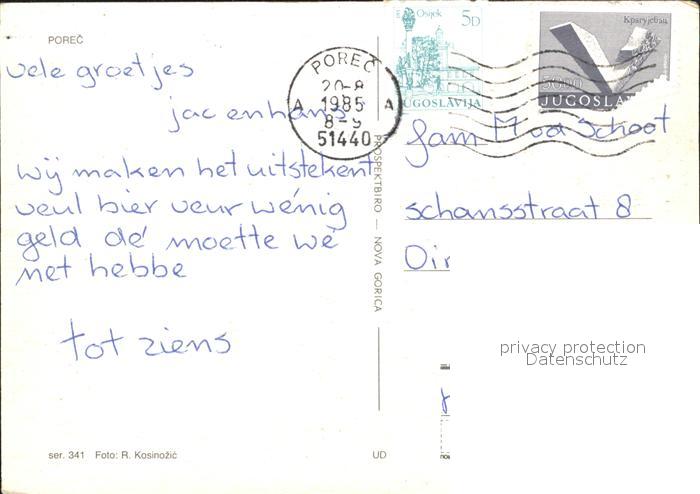 POREČ
vele groetjes
jac en hans
wij maken het uitstekent
veul bier veur wénig
geld dé moette wè
net hebbe
tot ziens
ser. 341 Foto: R. Kosinožić
UD
PROSPEKTBIRO — NOVA GORICA
POREČ
20-8
A 1985 A
8-9
51440
Osijek 5D
JUGOSLAVIJA
Крагујевац
50.00
JUGOSLA
fam M vd Schoot
schansstraat 8
Oir
privacy protection
Datenschutz